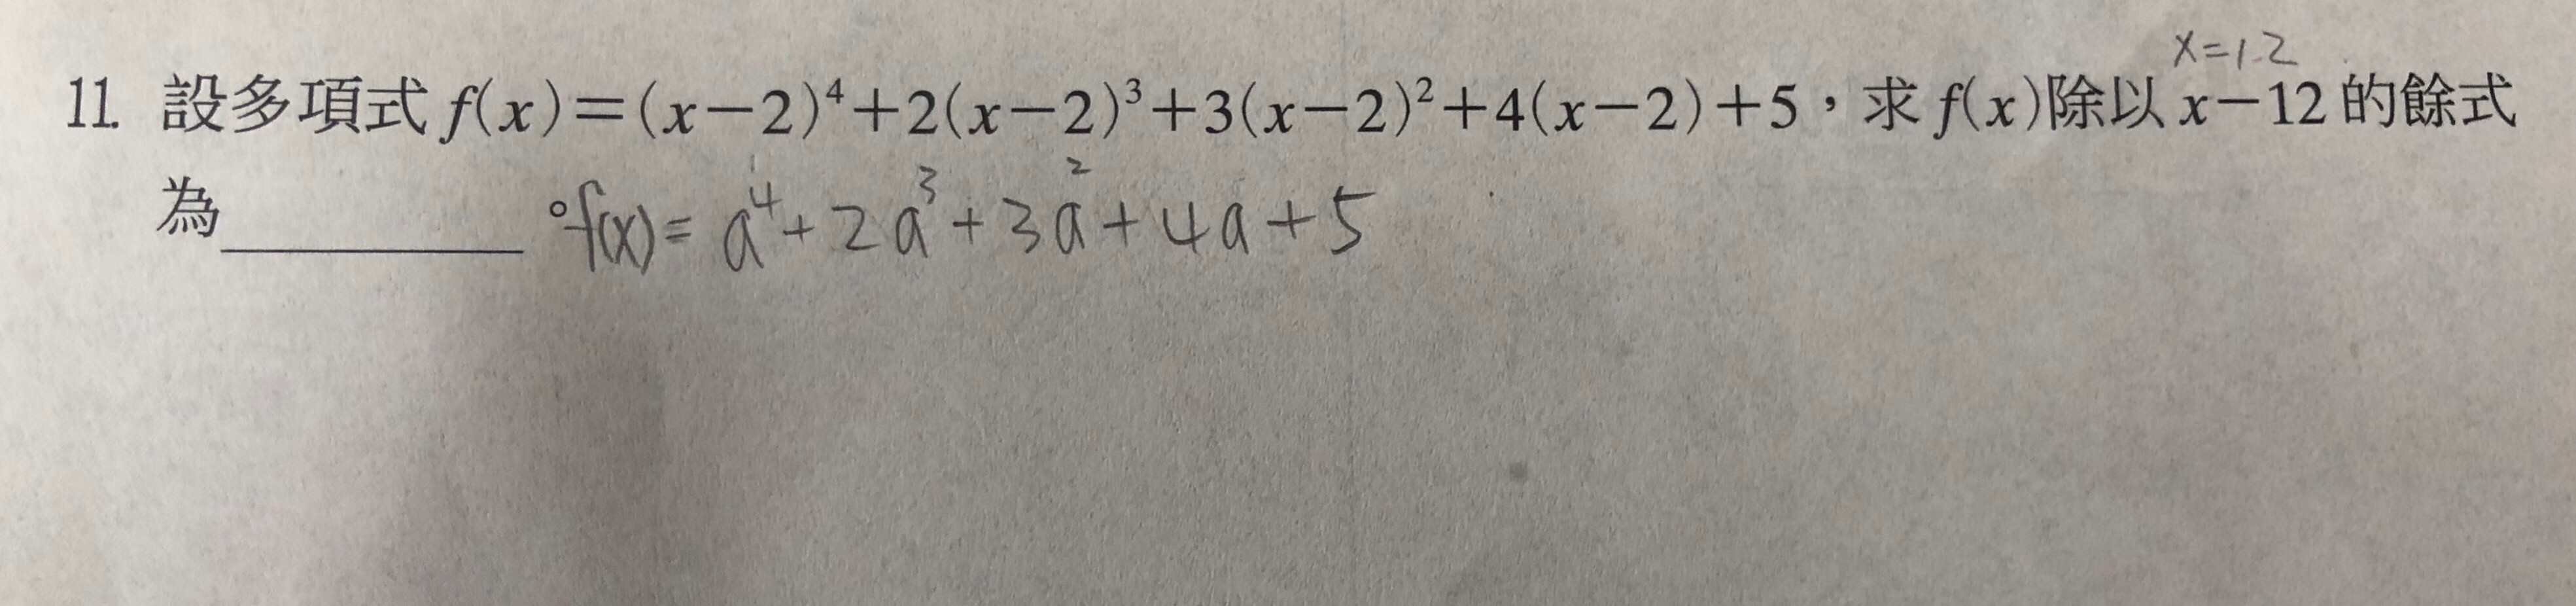 x=12
11. 設多項式 f(x)=(x−2)⁴+2(x−2)³+3(x−2)²+4(x−2)+5，求 f(x)除以 x−12 的餘式
為__________。f(x)= a⁴+2a³+3a²+4a+5